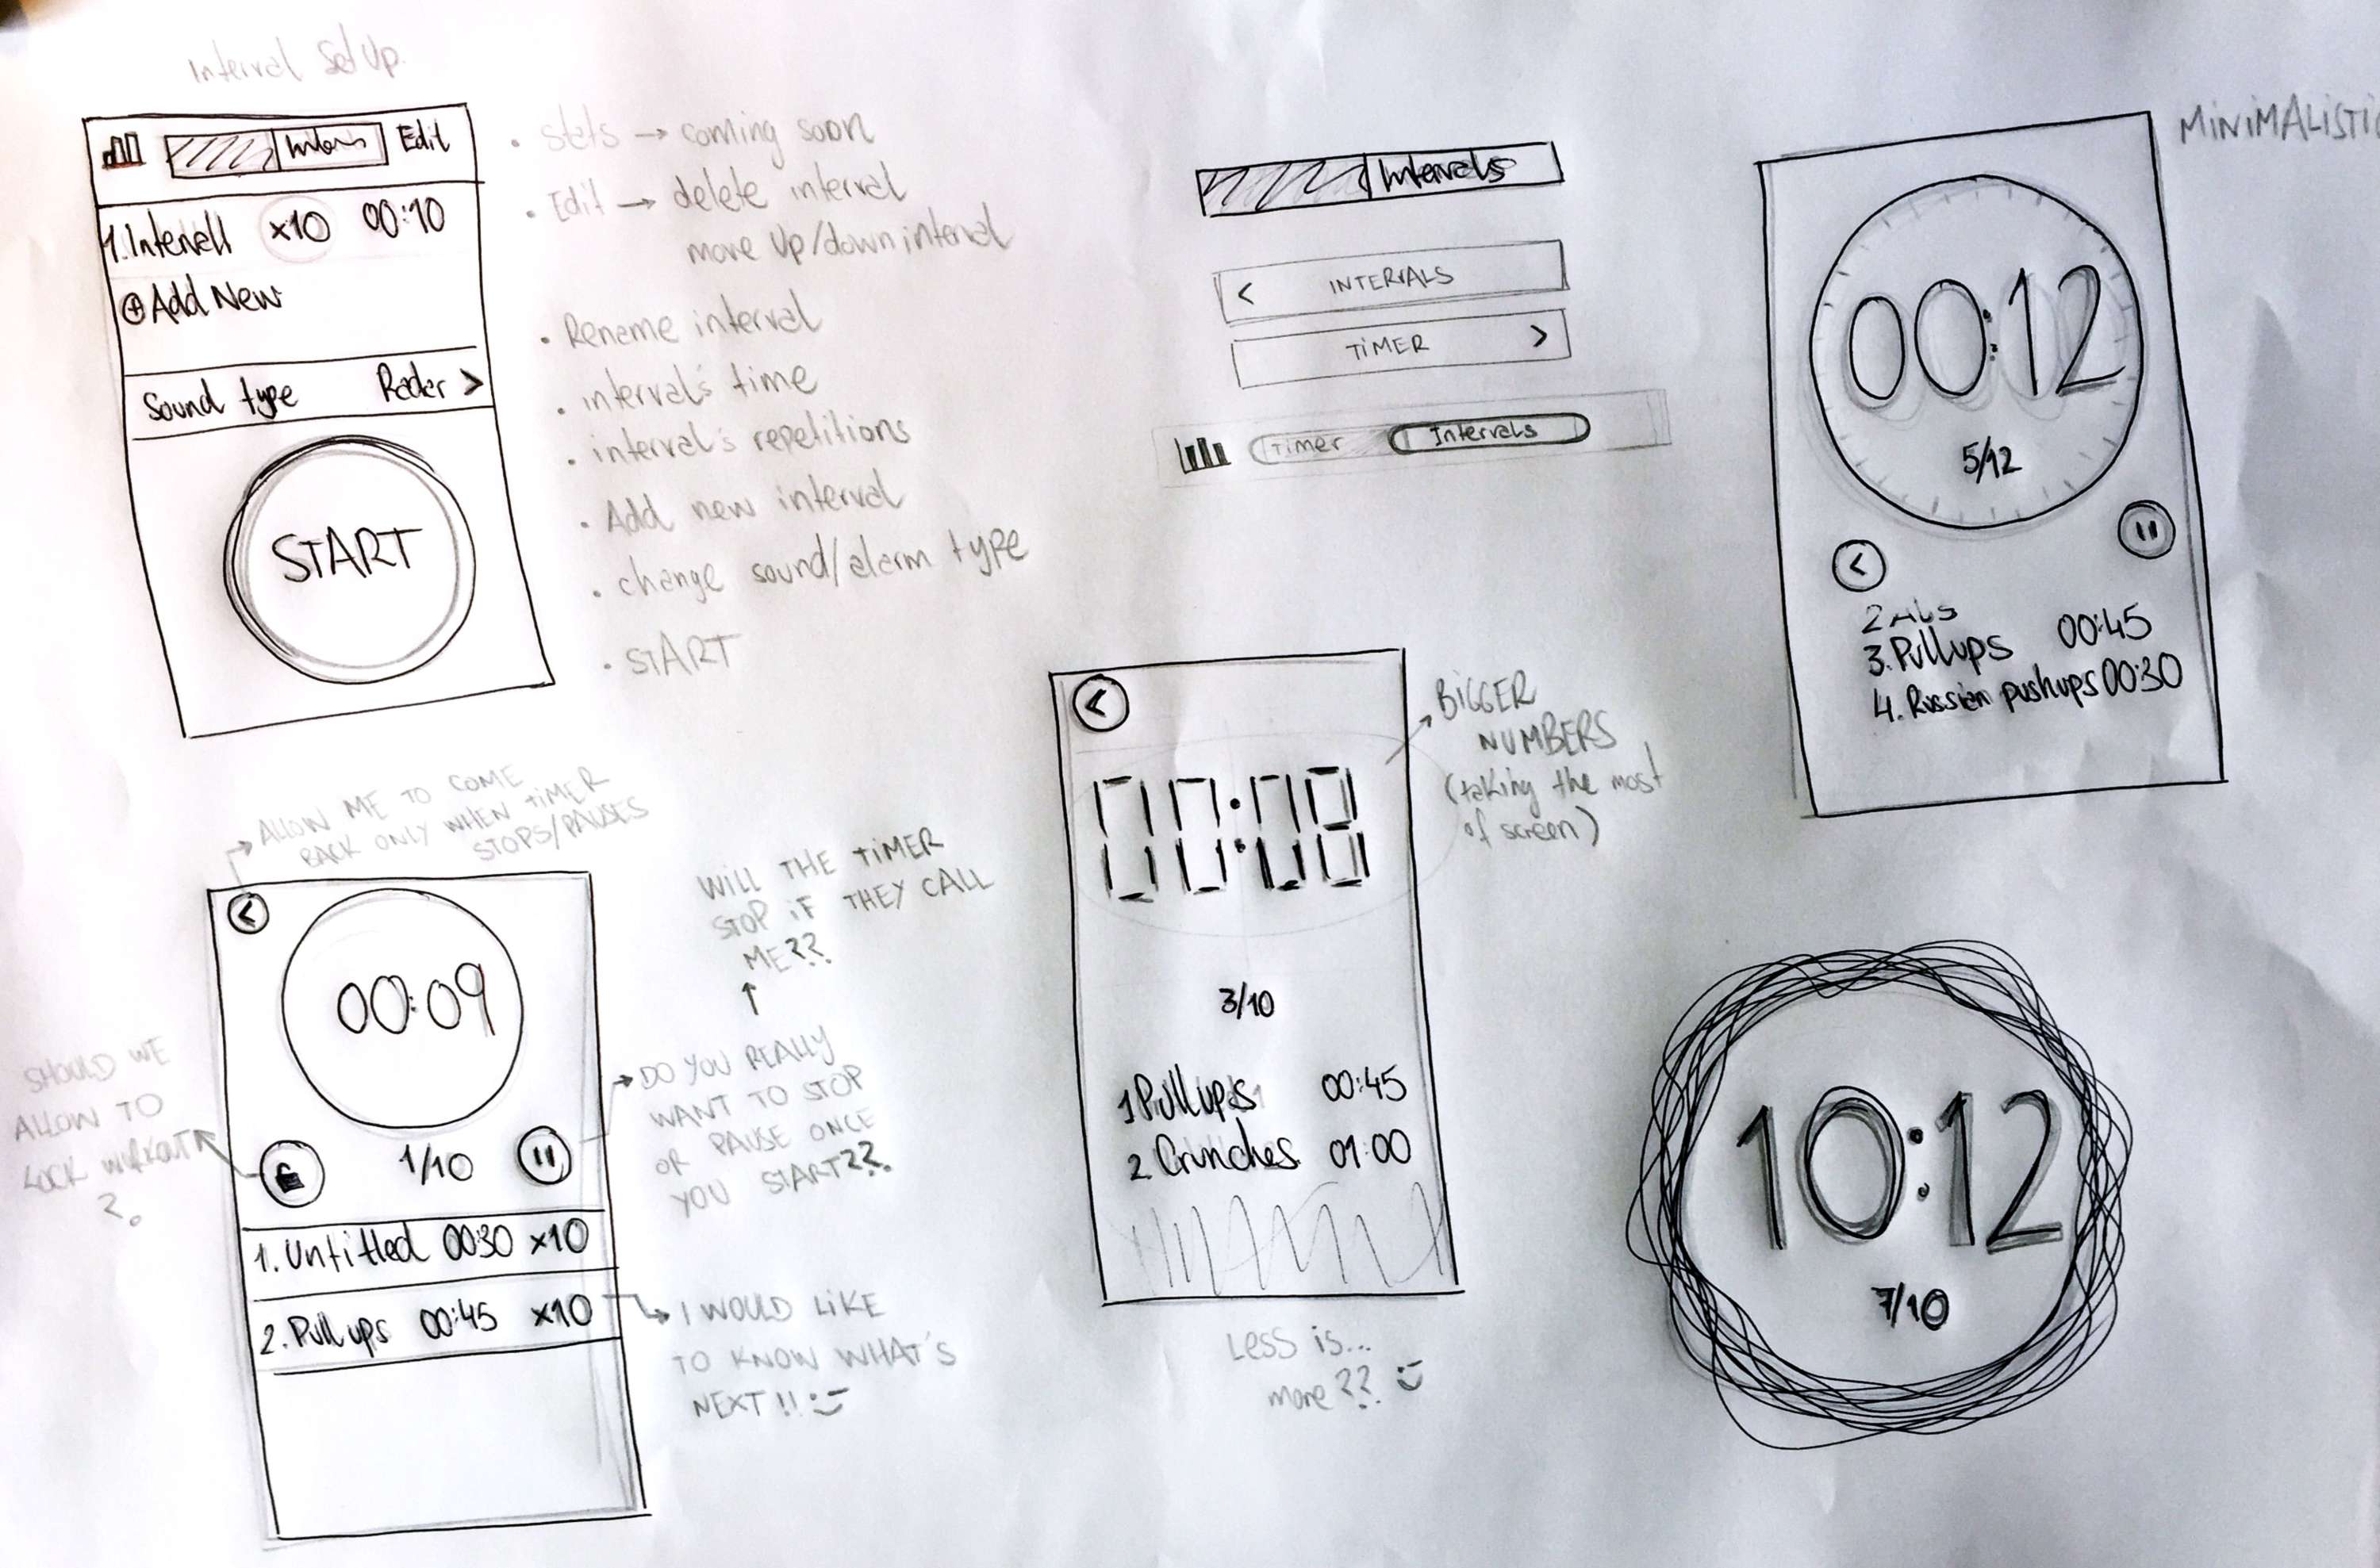 Interval Set Up
Edit
1. Intervall x10 00:10
Add New
Sound type Radar >
START
• stats → coming soon
• Edit → delete interval
move up/down interval
• Rename interval
• interval's time
• interval's repetitions
• Add new interval
• change sound/alarm type
• START
Intervals
< INTERVALS
TIMER >
Timer Intervals
MINIMALISTIC
00:12
5/12
<
2 Abs
3. Pullups 00:45
4. Russian pushups 00:30
ALLOW ME TO COME
BACK ONLY WHEN TIMER
STOPS/PAUSES
<
00:09
1/10
1. Untitled 00:30 x10
2. Pull ups 00:45 x10
SHOULD WE
ALLOW TO
LOCK WORKOUT
?
WILL THE TIMER
STOP IF THEY CALL
ME??
DO YOU REALLY
WANT TO STOP
OR PAUSE ONCE
YOU START??
I WOULD LIKE
TO KNOW WHAT'S
NEXT!! :)
<
00:08
3/10
1 Pull ups 00:45
2. Crunches 01:00
BIGGER
NUMBERS
(taking the most
of screen)
Less is...
more?? :)
10:12
7/10